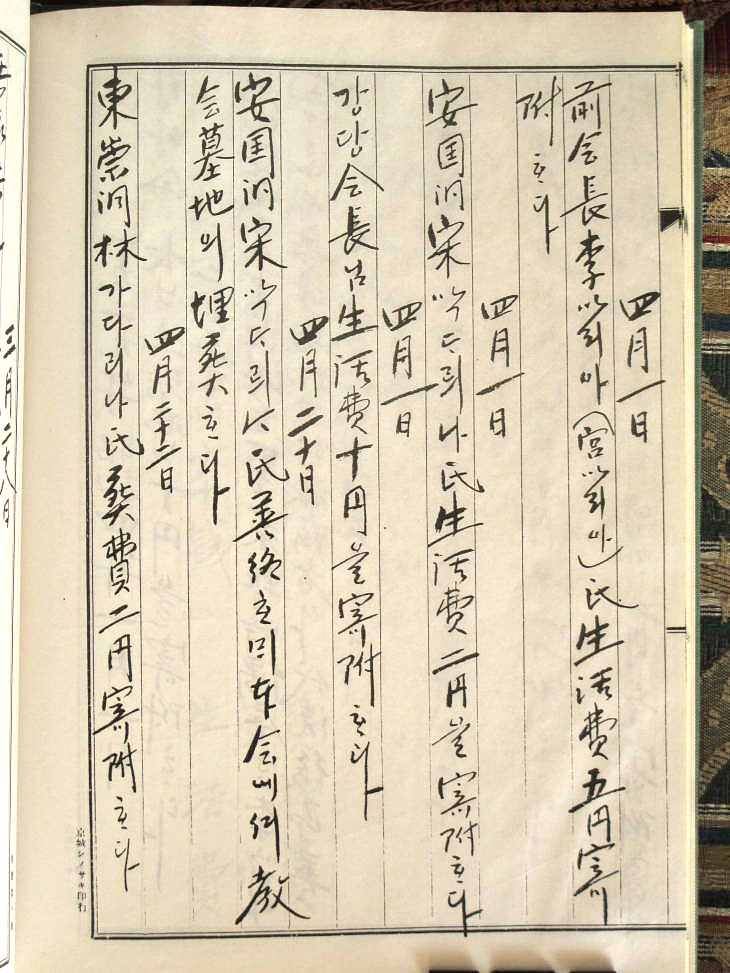 四月一日
前会長李마릐아(宮마릐아)氏生活費五円寄
附ᄒᆞ다
四月一日
安国洞宋막다릐나氏生活費二円을寄附ᄒᆞ다
四月一日
강당会長님生活費十円을寄附ᄒᆞ다
四月二十日
安国洞宋막다릐나氏善終ᄒᆞ믜本会에셔教
会墓地의埋葬ᄒᆞ다
四月二十二日
東崇洞林가다리나氏葬費二円寄附ᄒᆞ다
京城シノサキ印行
三月二十八日